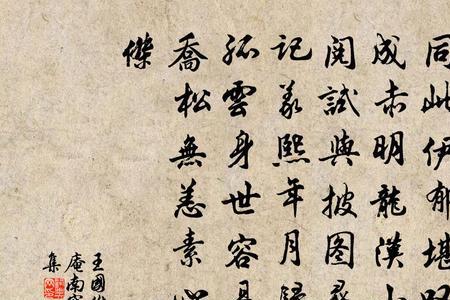 同此伊郁堪
成赤明龍漢
閱試與披圖尋
記義熙年月歸
孤雲身世容
喬松無恙素心
傑
王國
庵南
集